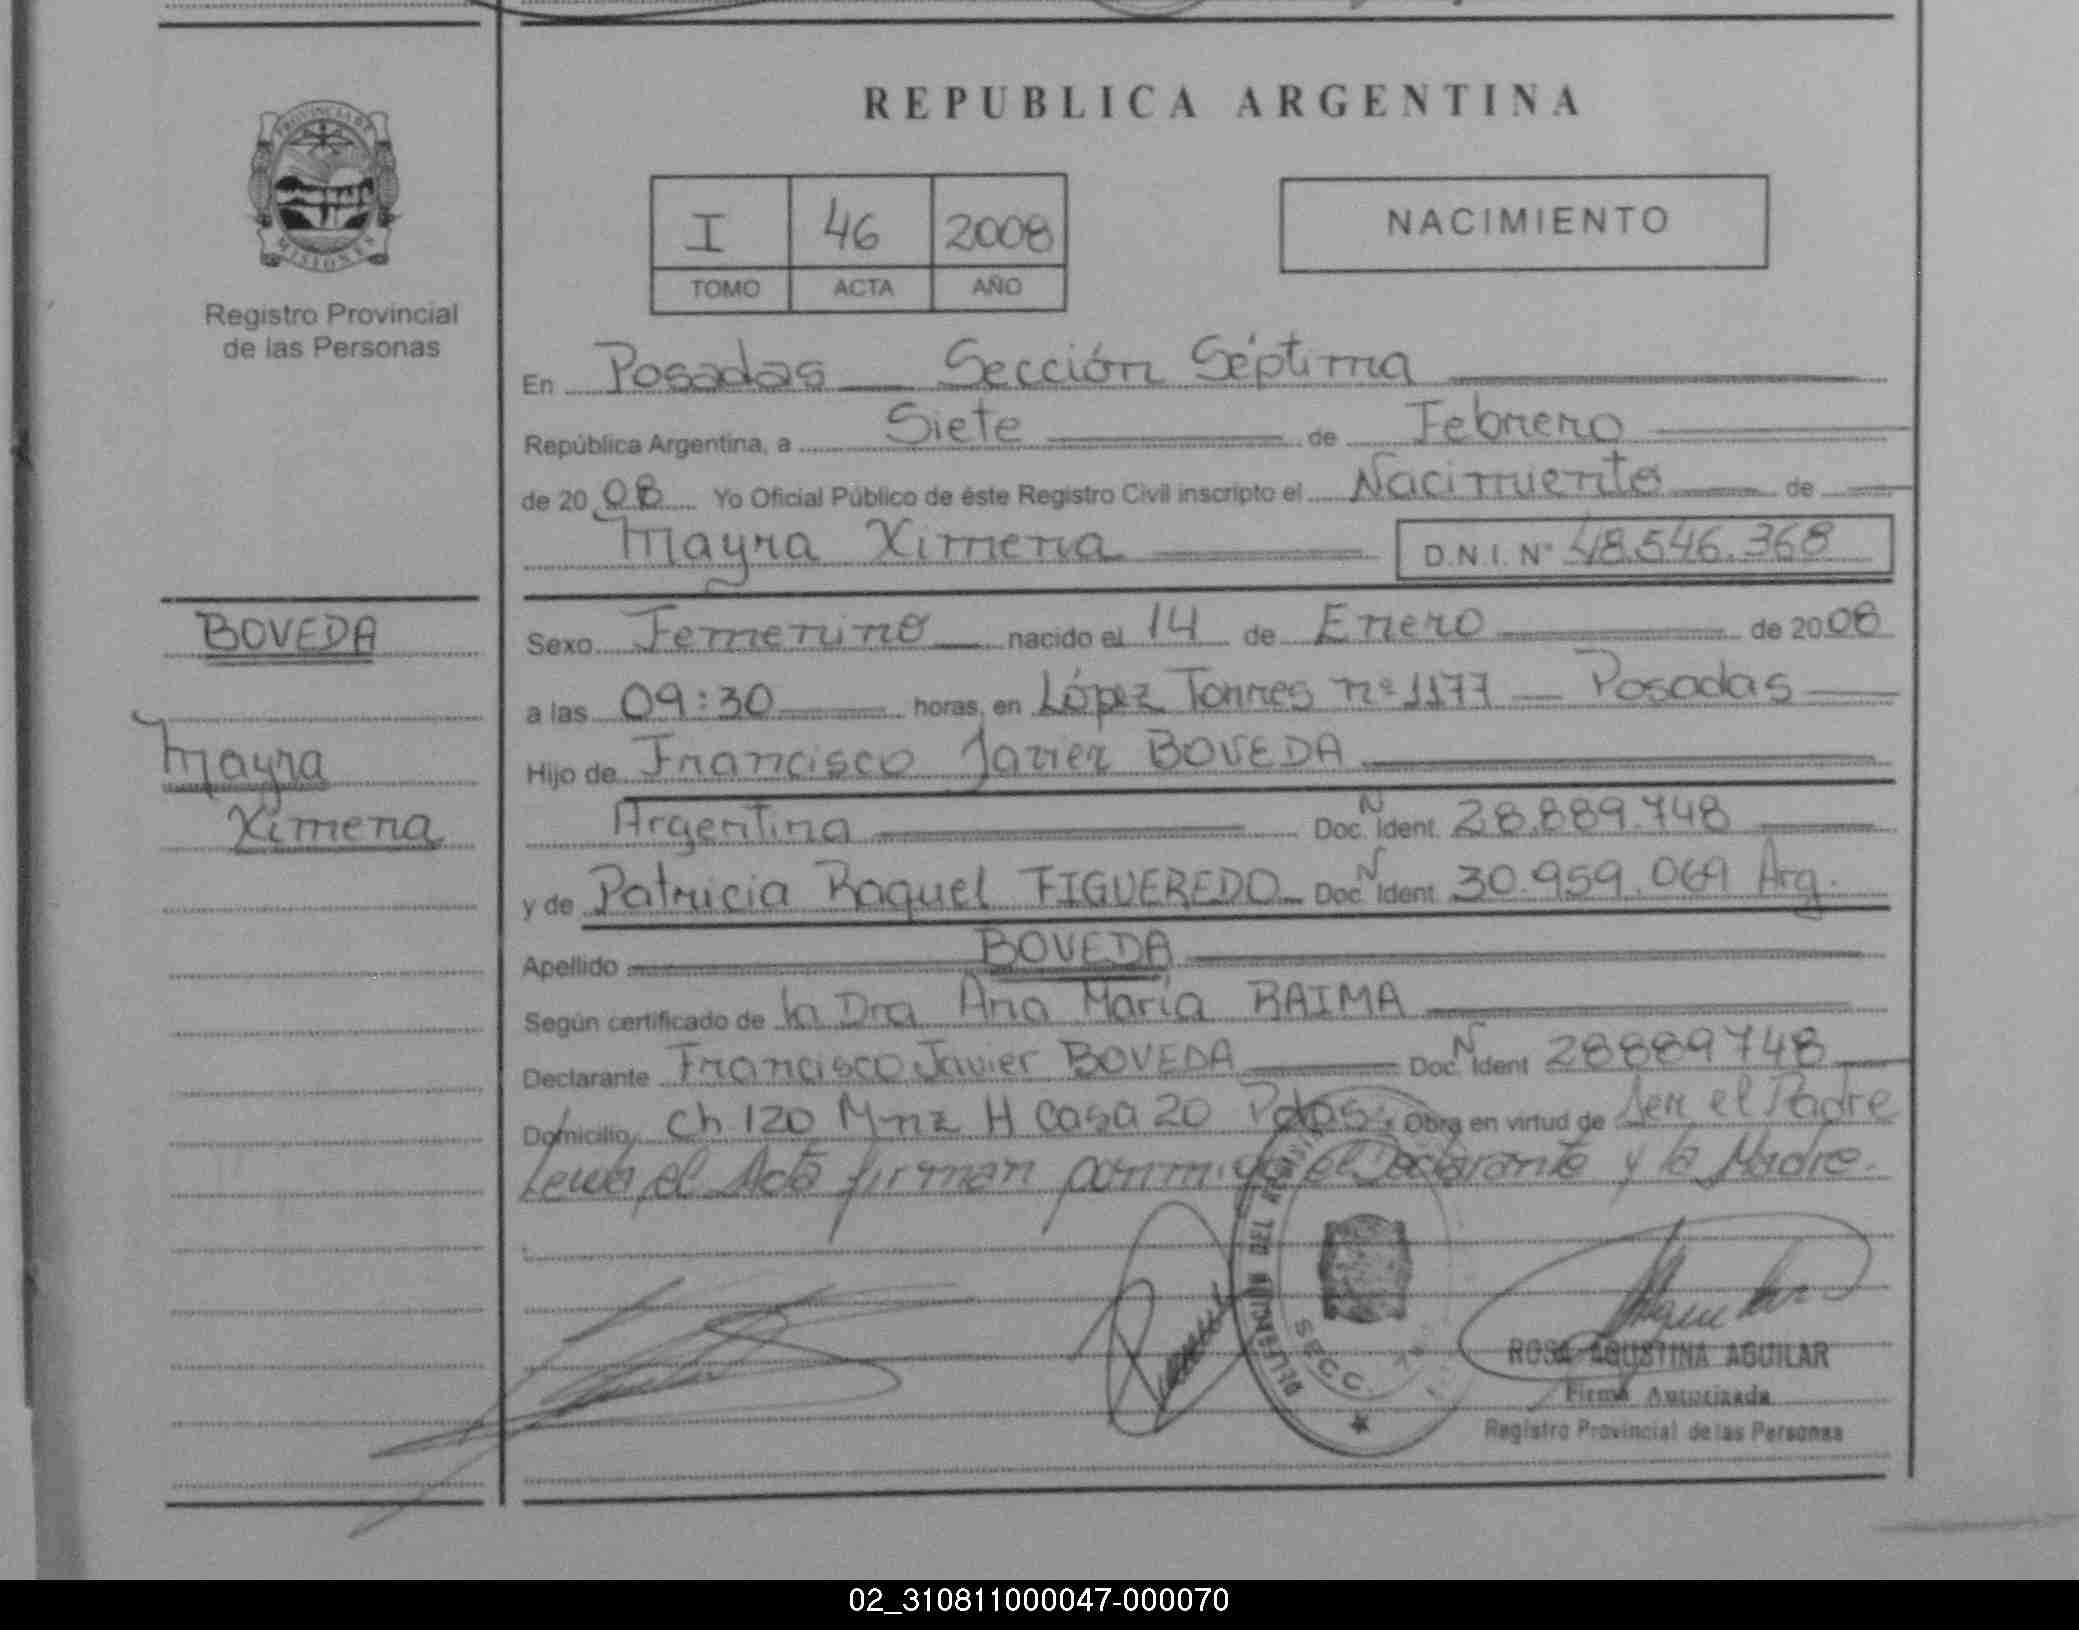 REPUBLICA ARGENTINA
PROVINCIA DE
MISIONES
Registro Provincial
de las Personas
I 46 2008
TOMO ACTA AÑO
NACIMIENTO
En Posadas Sección Séptima
República Argentina, a Siete de Febrero
de 2008 Yo Oficial Público de éste Registro Civil inscripto el Nacimiento de
Mayra Ximena D.N.I. Nº 48.546.368
BOVEDA
Mayra
Ximena
Sexo Femenino nacido el 14 de Enero de 2008
a las 09:30 horas, en López Torres nº 1177 Posadas
Hijo de Francisco Javier BOVEDA
Argentina Doc. N Ident. 28.889.748
y de Patricia Raquel FIGUEREDO Doc. N Ident. 30.959.069 Arg.
Apellido BOVEDA
Según certificado de la Dra Ana María RAIMA
Declarante Francisco Javier BOVEDA Doc. N Ident 28889748
Domicilio Ch 120 Mnz H Casa 20 Pdas. Obra en virtud de Ser el Padre
el Acta firman el Declarante y la Madre.
SECC.
ROSA AGUSTINA AGUILAR
Firma Autorizada
Registro Provincial de las Personas
02_310811000047-000070